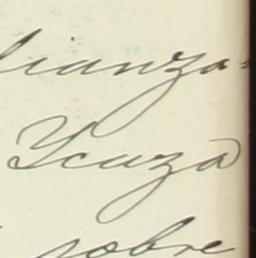 lianza-
Ycaza
sobre